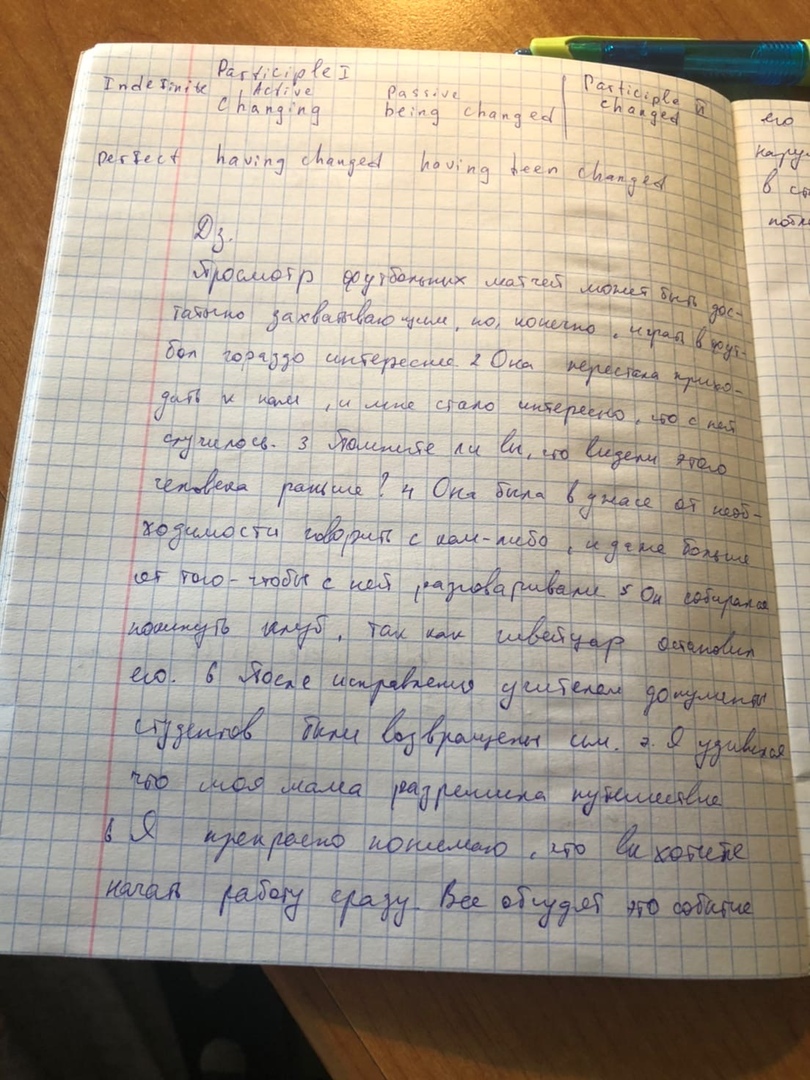 Participle I
Indefinite Active Passive Participle II
changing being changed changed
perfect having changed having been changed
Дз.
Просмотр футбольних матчей может быть дос-
таточно захватывающим, но, конечно, играть в фут-
бол гораздо интереснее. 2 Она перестала прихо-
дить к нам, и мне стало интересно, что с ней
случилось. 3 Помните ли вы, что видели этого
человека раньше? 4 Она была в ужасе от необ-
ходимости говорить с кем-либо, и даже больше
от того-чтобы с ней разговаривали 5 Он собирался
покинуть клуб, так как швейцар остановил
его. 6 После исправления учителем документы
студентов были возвращены им. 7. Я удивился
что моя мама разрешила путешествие
8 Я прекрасно понимаю, что вы хотите
начать работу сразу. Все обсудят это событие
его
в